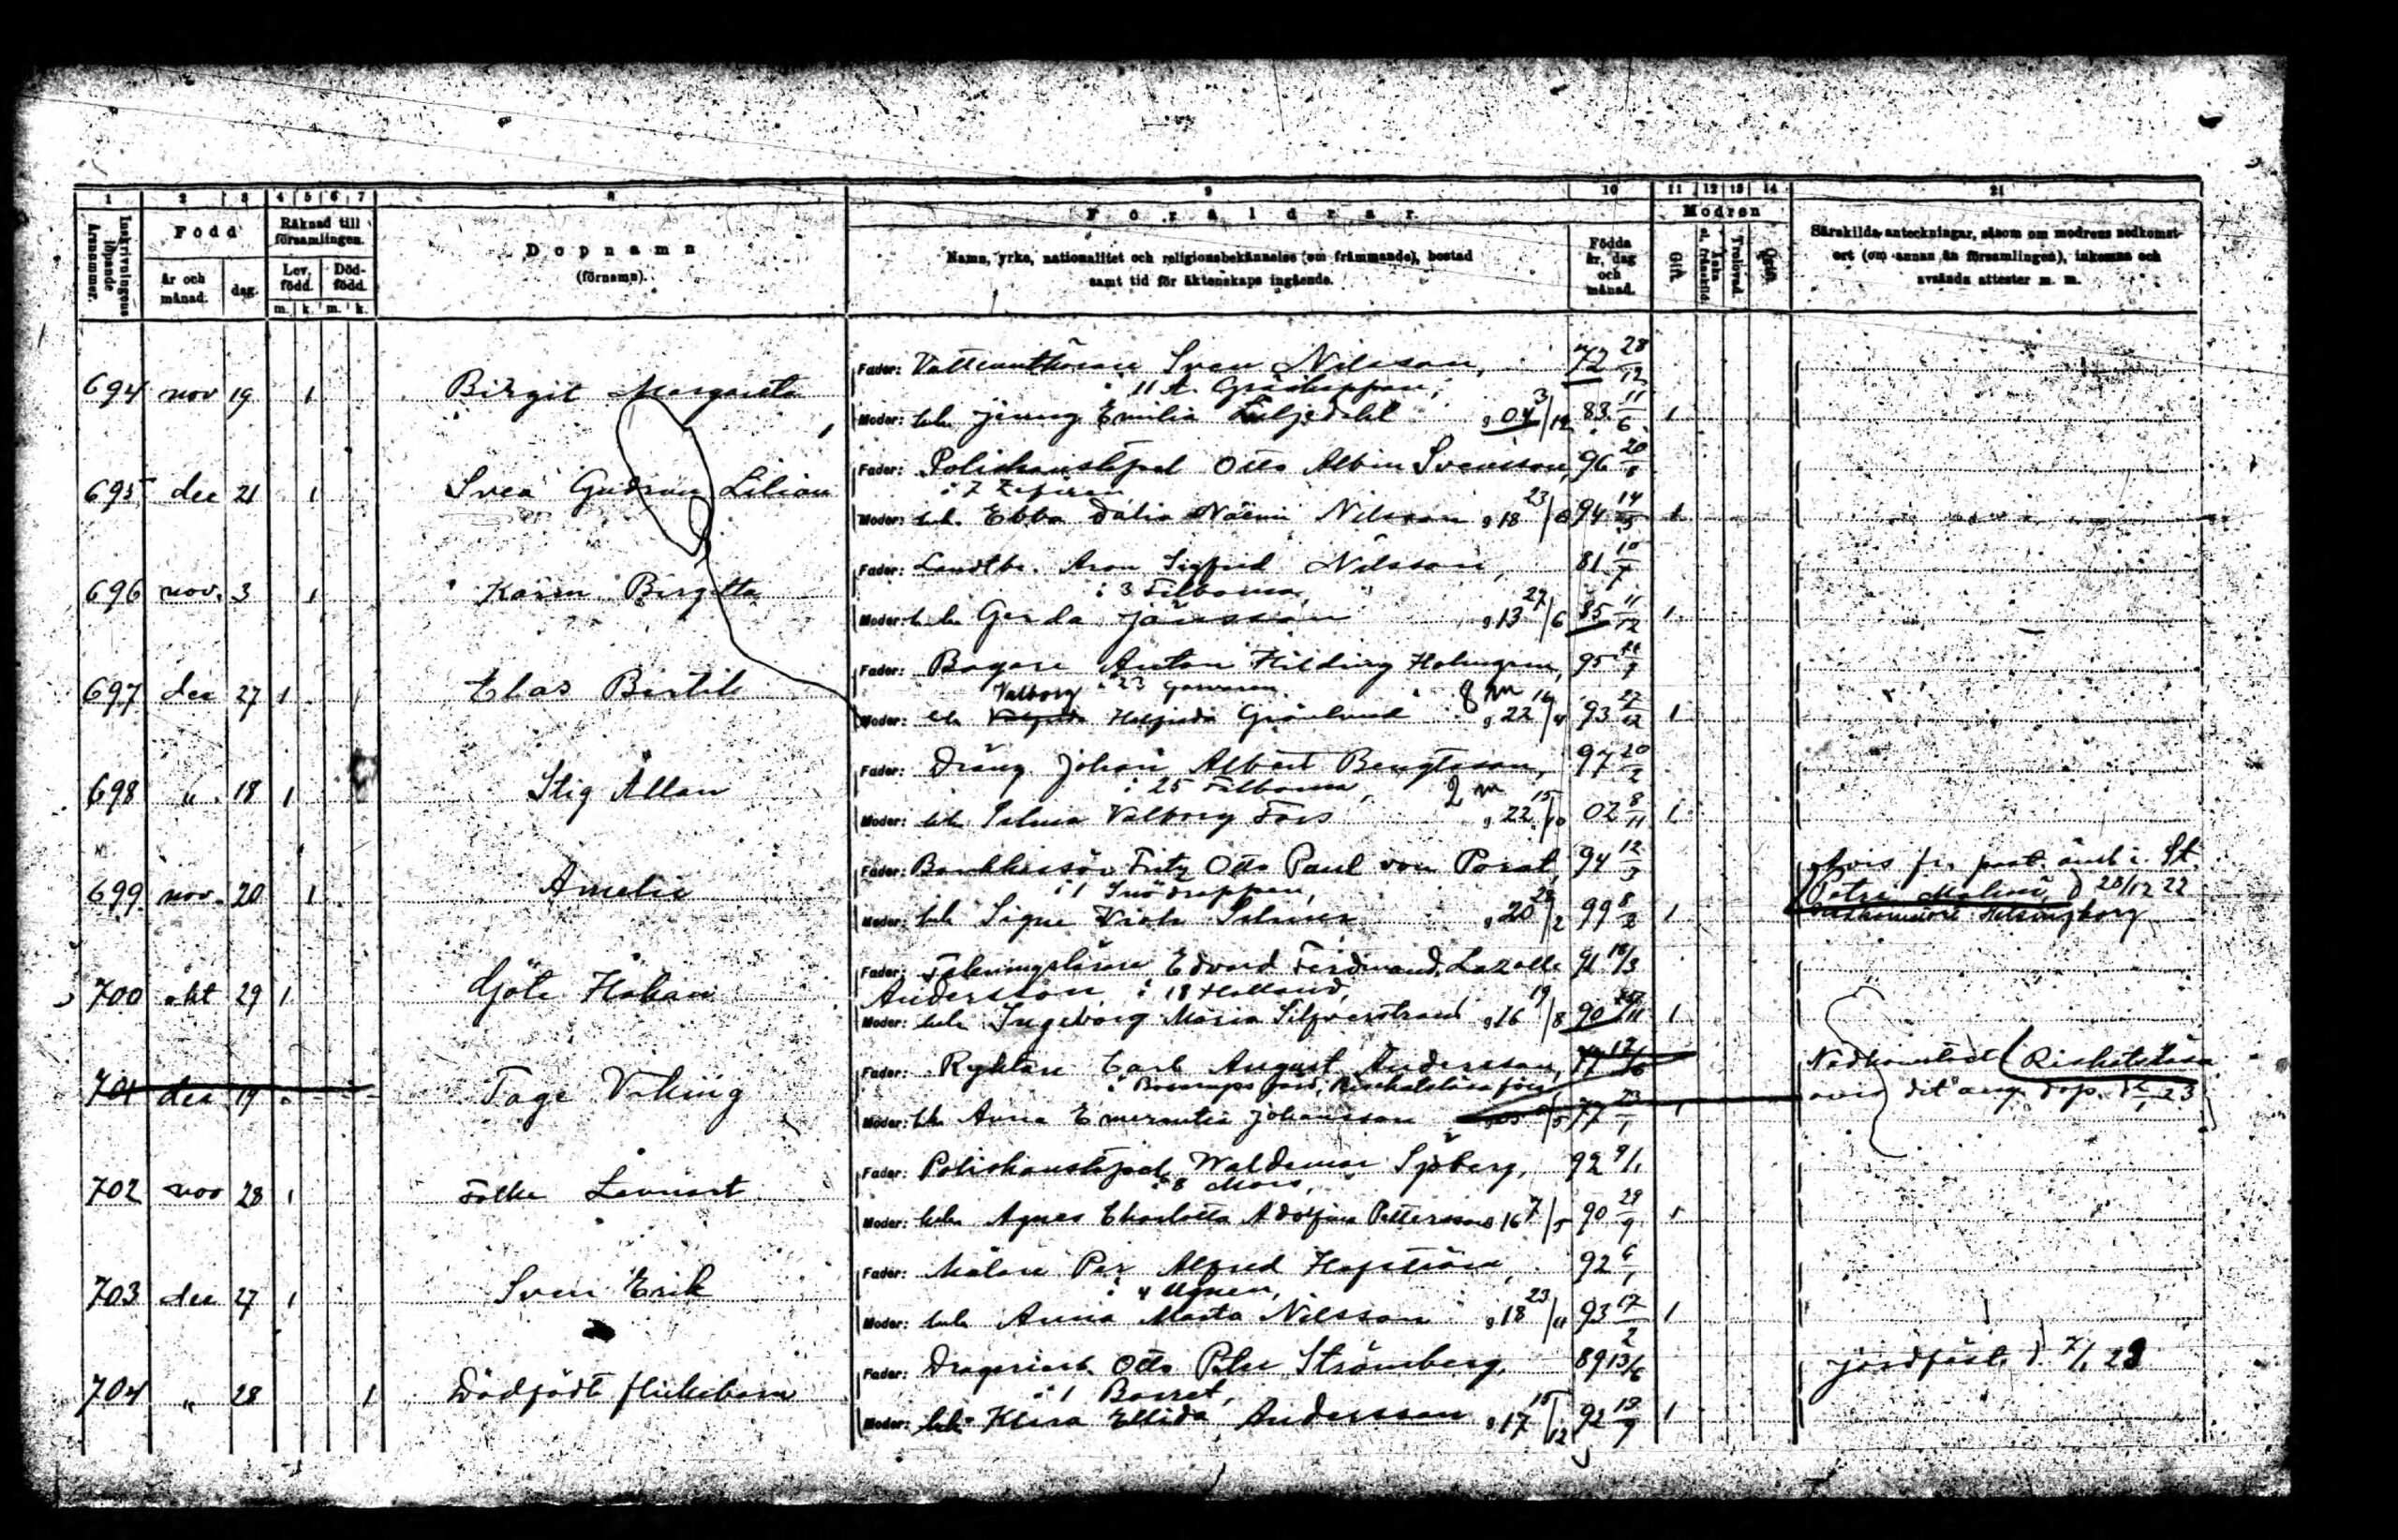 1 2 3 4 5 6 7 8 9 10 11 12 13 14 21
Inskrivningens löpande årsnummer.
Född
År och månad.
dag.
Räknad till församlingen.
Lev. född.
Död-född.
m. k. m. k.
Dopnamn
(förnamn).
Föräldrar.
Namn, yrke, nationalitet och religionsbekännelse (om främmande), bostad
samt tid för äktenskaps ingående.
Födda år, dag och månad.
Modren
Gift.
Änka el. frånskild.
Trolovad.
Ogift.
Särskilda anteckningar, såsom om modrens nedkomst-
ort (om annan än församlingen), inkomna och
avsända attester m. m.
Fader: Sven Nilsson, 72 28/12
694 nov 19 1 Birgit Margareta
11 A.
Moder: Jenny Emilia Liljedahl g 04 3/12 83 11/6 1
Fader: Poliskonstapel Otto Albin Svensson, 96 20
695 dec 21 1 Svea Gudrun Lilian
i 7 Zefiren
Moder: Ebba Dalia Nilsson g 18 23 94 14 1
Fader: Landtbr. Aron Sigfrid Nilsson, 81 10/7
696 nov. 3 1 Karin Birgitta
i 3 Filborna,
Moder: Gerda Jönsson g 13 27/6 85 11/12 1
Fader: Bagare Anton Hilding Holmgren, 95 /7
697 dec 27 1 Bertil
Valborg i 23 Garvaren 8 m
Moder: Grönlund g 22 16/4 93 27/12 1
Fader: Dräng Johan Albert Bengtsson, 97 20/2
698 " 18 1 Stig Allan
i 25 Filborna, 2 m
Moder: Selma Valborg Fors g 22 15/10 02 8/11 1
Fader: Fritz Otto Paul von Porat, 94 12/3
699 nov. 20 1 Amelie
i 1 Snödroppen,
Moder: Signe Viola g 20 /2 99 8/2 1
Avis fr. past.ämb. i St.
Petri, Malmö, d 28/12 22
Helsingborg
Fader: Edvard Ferdinand Lazalle 91 18/3
700 okt 29 1 Göte Håkan
Andersson, i 18 Holland,
Moder: Ingeborg Maria Silfverstrand g 16 19/8 90 /11 1
Fader: Ryktare Carl August Andersson, 77
701 dec 19 Tage Viking
Moder: Anna Emerentia Johansson 77 23/1 1
Risekatslösa
avis dit ang. dop. d /1 23
Fader: Poliskonstapel Waldemar Sjöberg, 92 9/1
702 nov 28 1 Folke Lennart
i 8 Mars,
Moder: Agnes Charlotta Adolfina Pettersson g 16 7/5 90 29/9 1
Fader: Målare Per Alfred Hafström, 92 6/1
703 dec 27 1 Sven Erik
i 4 Ugnen,
Moder: Anna Marta Nilsson g 18 23/11 93 17/2 1
Fader: Otto Peter Strömberg, 89 13/6
704 " 28 1 Dödfödt flickebarn
i 1 Barret,
Moder: Klara Ellida Andersson g 17 15/12 92 19/9 1
jordfäst. d. 7/1 23